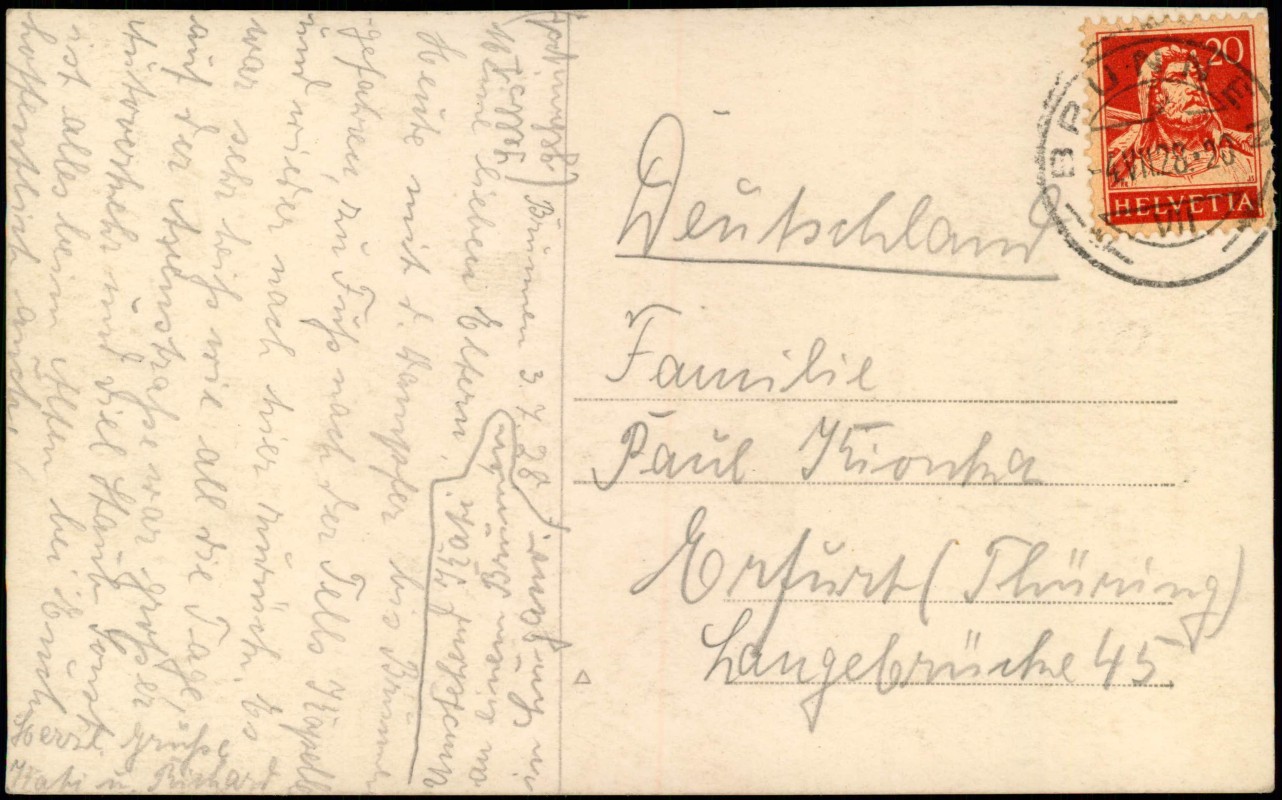 Brunnen 3. 7. 28
Meine lieben Eltern!
Heute mit d. Dampfer bis Brunnen
gefahren, zu Fuß nach der Tells Kapelle
und wieder nach hier zurück. Es
war sehr heiß wie all die Tage,
auf der Axenstraße war großer
Autoverkehr und viel Staub. Sonst
ist alles beim Alten bei Euch
hoffentlich auch.
Herzl. Grüße
Käti u. Richard
20
HELVETIA
BRUNNEN
4.VII.28-20
VII
Deutschland
Familie
Paul Kionka
Erfurt (Thüring)
Langebrücke 45